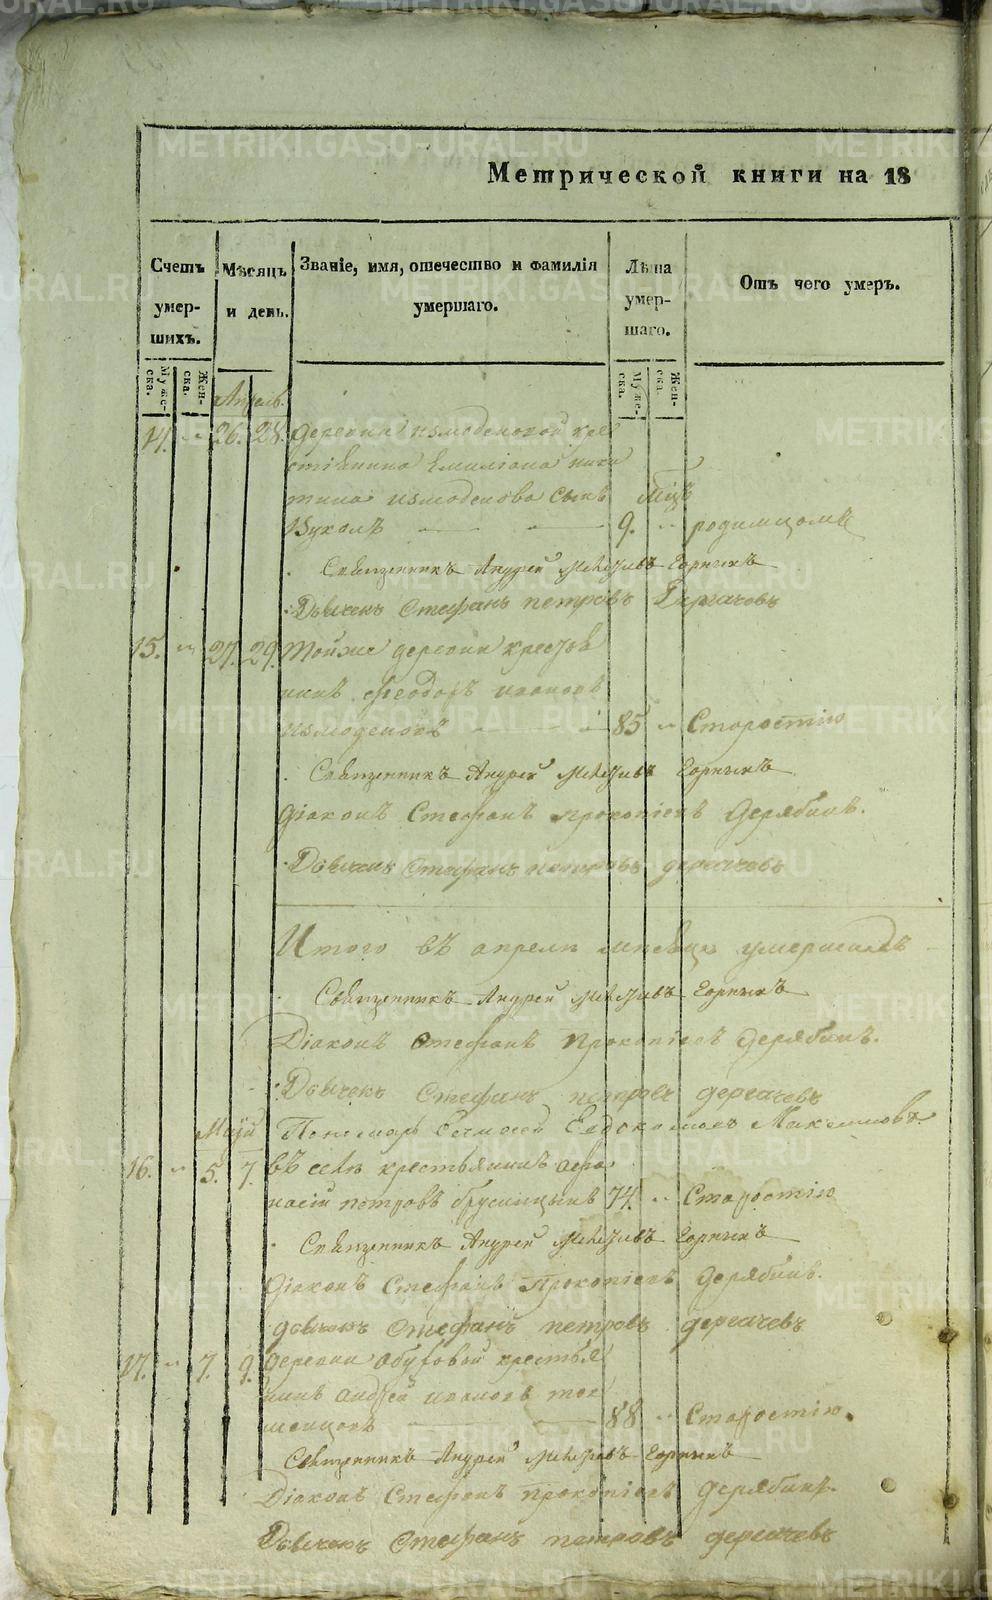 Метрической книги на 18
Счетъ умер-шихъ.
Мѣсяцъ и день.
Званіе, имя, отечество и фамилія умершаго.
Лѣта умер-шаго.
Отъ чего умеръ.
Муже-ска.
Жен-ска.
Муже-ска.
Жен-ска.
Апрель
14. " 26. 28. деревни измоденовой крес
стьянина Емиліана ники
тина измоденова сынъ мцъ
Вуколъ 9. " родимцомъ
Священникъ Андрей Горныхъ
Дьячекъ Стефанъ петровъ Дергачевъ
15. " 27. 29. Тойже деревни крестья
нинъ феодоръ ивановъ
измоденовъ 85 " Старостію
Священникъ Андрей Горныхъ
діаконъ Стефанъ прокопіевъ Дерябинъ.
Дьячекъ Стефанъ петровъ дергачевъ
Итого въ апрели месяце умершихъ
Священникъ Андрей Горныхъ
Діаконъ Стефанъ Прокопіевъ Дерябинъ.
Дьячекъ Стефанъ петровъ дергачевъ
Маій Пономарь Евдокимовъ Максимовъ
16. " 5. 7. въ селе крестьянинъ афа
насій петровъ брусницынъ 74 " Старостію
Священникъ Андрей Горныхъ
діаконъ Стефанъ Прокопіевъ Дерябинъ.
дьячекъ Стефанъ петровъ дергачевъ
17. " 7. 9. деревни крестья
нинъ андрей ивановъ
88 " Старостію.
Священникъ Андрей Горныхъ
Діаконъ Стефанъ прокопіевъ Дерябинъ.
Дьячекъ Стефанъ петровъ дергачевъ
METRIKI.GASO-URAL.RU